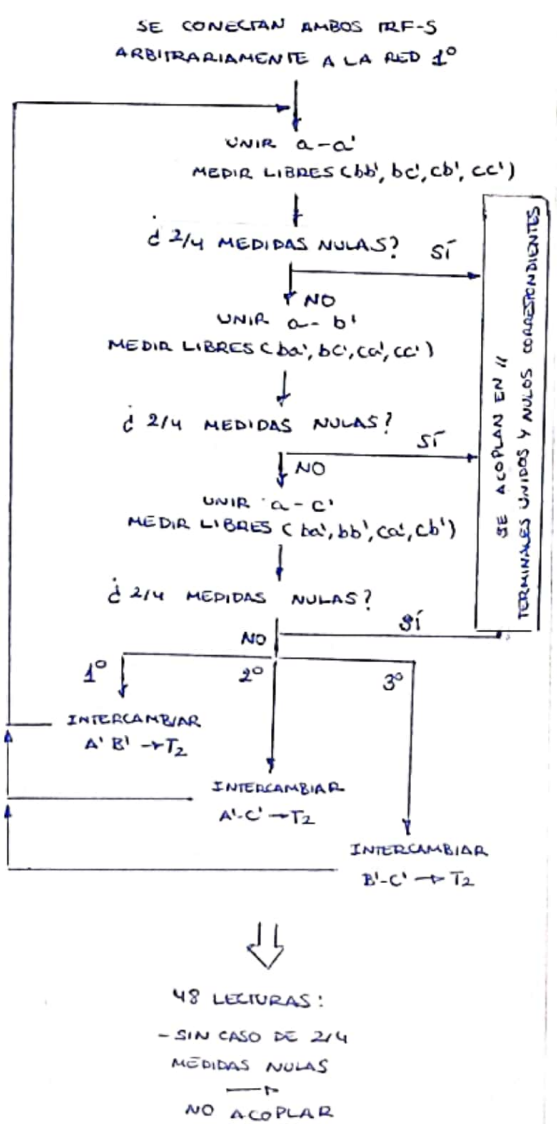 SE CONECTAN AMBOS TRF-S
ARBITRARIAMENTE A LA RED 1º
UNIR a-a'
MEDIR LIBRES (bb', bc', cb', cc')
¿ 2/4 MEDIDAS NULAS?
SÍ
NO
UNIR a-b'
MEDIR LIBRES (ba', bc', ca', cc')
¿ 2/4 MEDIDAS NULAS?
SÍ
NO
UNIR a-c'
MEDIR LIBRES (ba', bb', ca', cb')
¿ 2/4 MEDIDAS NULAS?
SÍ
NO
SE ACOPLAN EN //
TERMINALES UNIDOS Y NULOS CORRESPONDIENTES
1º
2º
3º
INTERCAMBIAR
A' B' → T2
INTERCAMBIAR
A'-C' → T2
INTERCAMBIAR
B'-C' → T2
48 LECTURAS:
- SIN CASO DE 2/4
MEDIDAS NULAS
→
NO ACOPLAR